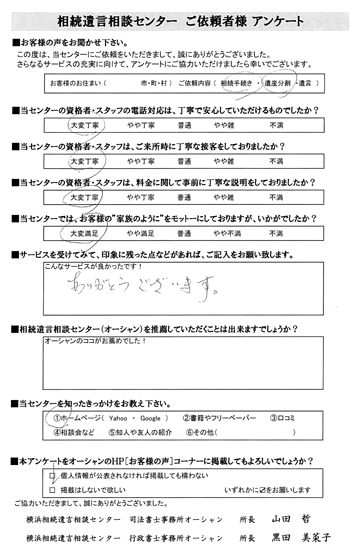 相続遺言相談センター ご依頼者様 アンケート
■お客様の声をお聞かせ下さい。
この度は、当センターにご依頼をいただきまして、誠にありがとうございました。
さらなるサービスの充実に向けて、アンケートにご協力いただけましたら幸いでございます。
お客様のお住まい( 市・町・村 ) ご依頼内容 ( 相続手続き ・遺産分割 ・遺言 )
■当センターの資格者・スタッフの電話対応は、丁寧で安心していただけるものでしたか？
大変丁寧 やや丁寧 普通 やや雑 不満
■当センターの資格者・スタッフは、ご来所時に丁寧な接客をしておりましたか？
大変丁寧 やや丁寧 普通 やや雑 不満
■当センターの資格者・スタッフは、料金に関して事前に丁寧な説明をしておりましたか？
大変丁寧 やや丁寧 普通 やや雑 不満
■当センターでは、お客様の"家族のように"をモットーにしておりますが、いかがでしたか？
大変満足 やや満足 普通 やや不満 不満
■サービスを受けてみて、印象に残った点などがあれば、ご記入をお願い致します。
こんなサービスが良かったです！
ありがとうございます。
■相続遺言相談センター(オーシャン)を推薦していただくことは出来ますでしょうか？
オーシャンのココがお薦めでした！
■当センターを知ったきっかけをお教え下さい。
①ホームページ( Yahoo ・ Google ) ②書籍やフリーペーパー ③口コミ
④相談会など ⑤知人や友人の紹介 ⑥その他( )
■本アンケートをオーシャンのHP[お客様の声]コーナーに掲載してもよろしいでしょうか？
□ 個人情報が公表されなければ掲載しても構わない
□ 掲載はしないで欲しい いずれかに☑をお願いします
ご協力いただきまして、誠にありがとうございました。
横浜相続遺言相談センター 司法書士事務所オーシャン 所長 山田 哲
横浜相続遺言相談センター 行政書士事務所オーシャン 所長 黒田 美菜子